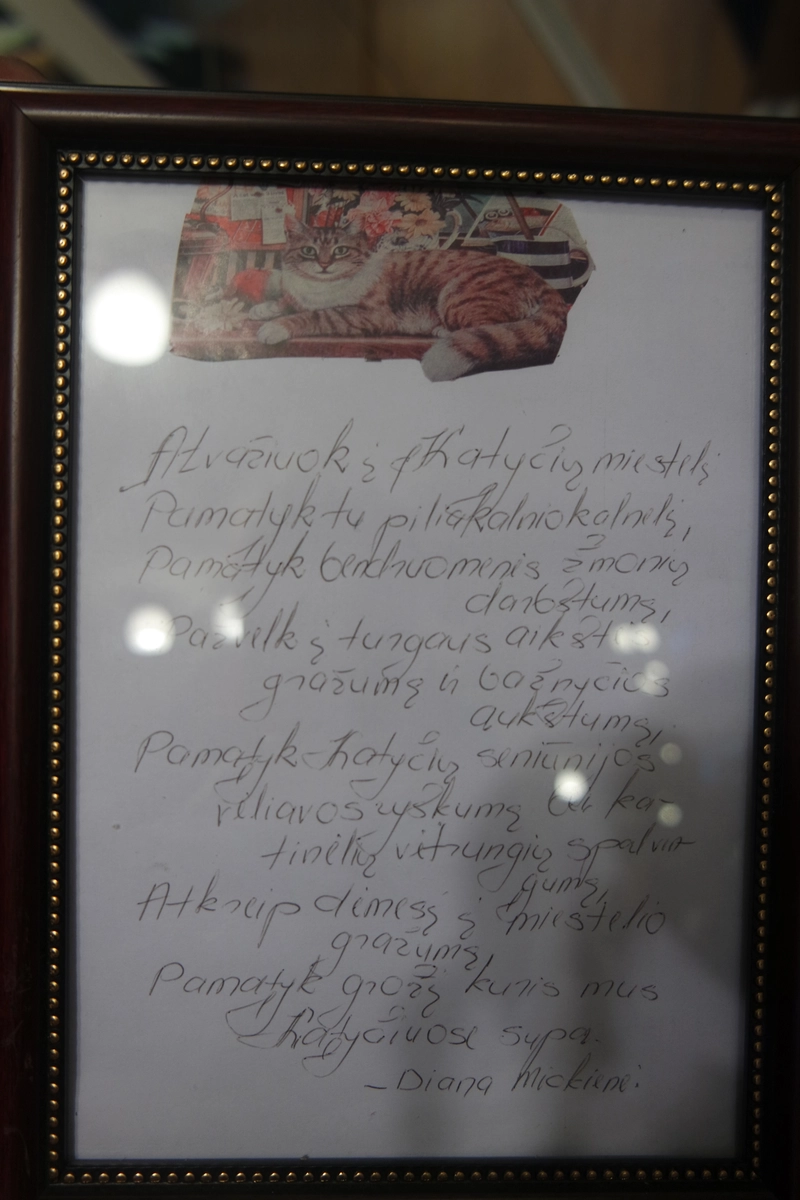 Atvažiuok į Katyčių miestelį
Pamatyk tu piliakalnio kalnelį,
Pamatyk bendruomenės žmonių
darbštumą,
Pažvelk į turgaus aikštės
gražumą ir bažnyčios
aukštumą,
Pamatyk Katyčių seniūnijos
vėliavos ryškumą bei ka-
tinėlių vitrungių spalvin-
gumą,
Atkreip dėmesį į miestelio
gražumą,
Pamatyk grožį kuris mus
Katyčiuose supa.
- Diana Mickienė.